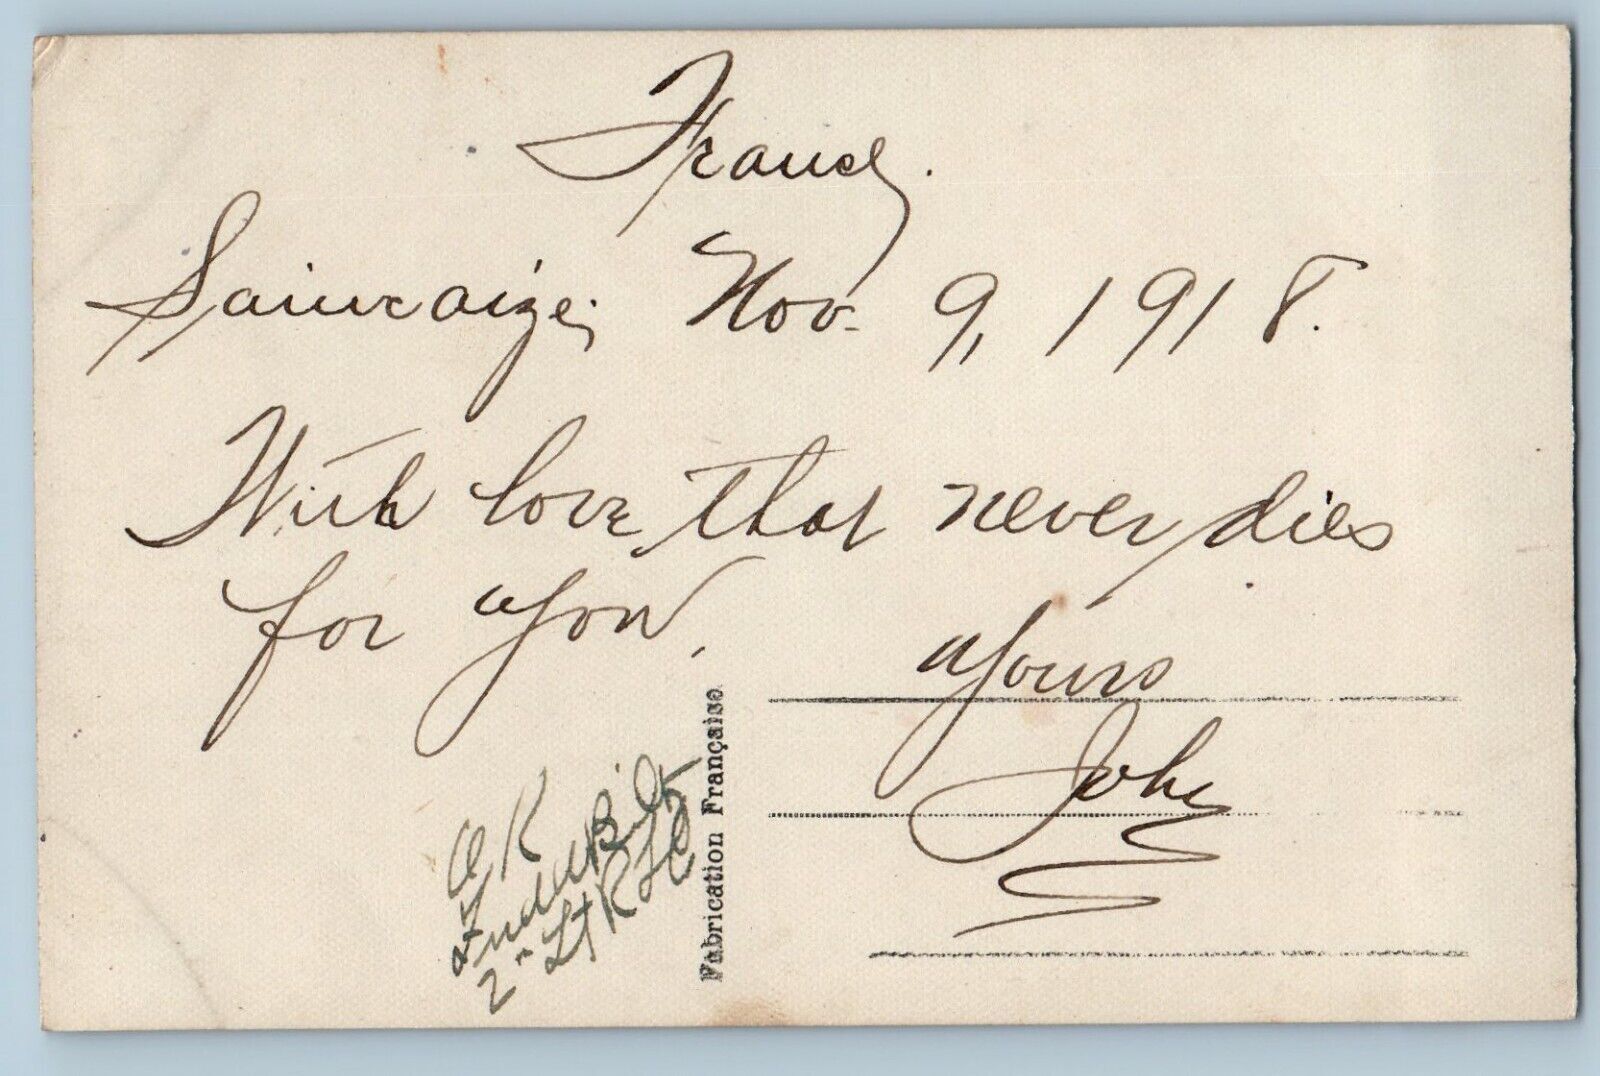 France.
Saincaize, Nov. 9, 1918.
With love that never dies
for you.
Yours
John
OK
2nd Lt
Fabrication Française